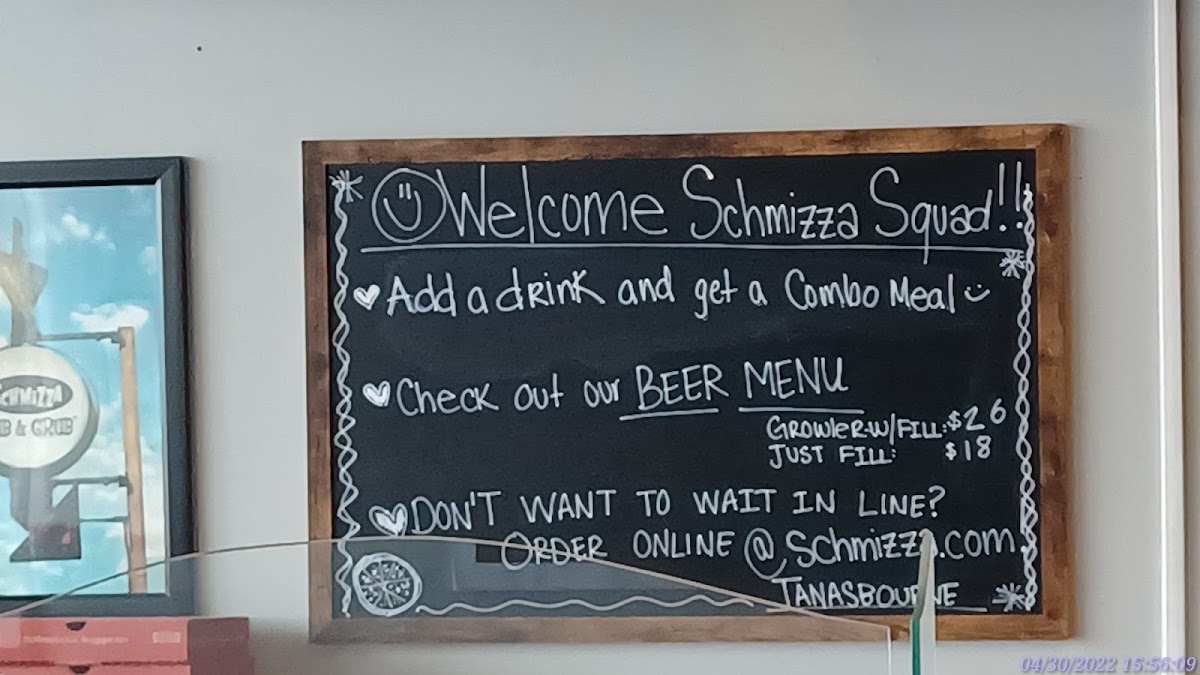 Welcome Schmizza Squad!!
Add a drink and get a Combo Meal
Check out our BEER MENU
GROWLER W/FILL: $26
JUST FILL: $18
DON'T WANT TO WAIT IN LINE?
ORDER ONLINE @ Schmizza.com
TANASBOURNE
SCHMIZZA
B & GRUB
04/30/2022 15:56:09